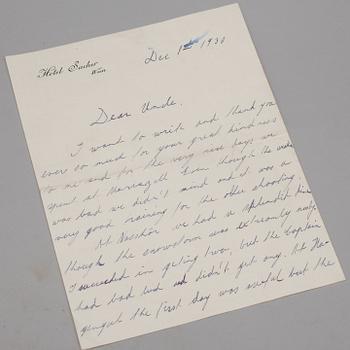 Hotel Sacher
Wien
Dec 1st 1930
Dear Uncle.
I want to write and thank you
ever so much for your great kindness
to me and for the very nice days we
spent at Mariazell. Even though the
was bad we didn't mind and it was a
very good training for the other shooting.
At we had a splendid time
though the snowstorm was extremely nasty.
I succeeded in getting two, but the Captain
had bad luck and didn't get any. At
the first day was awful but the